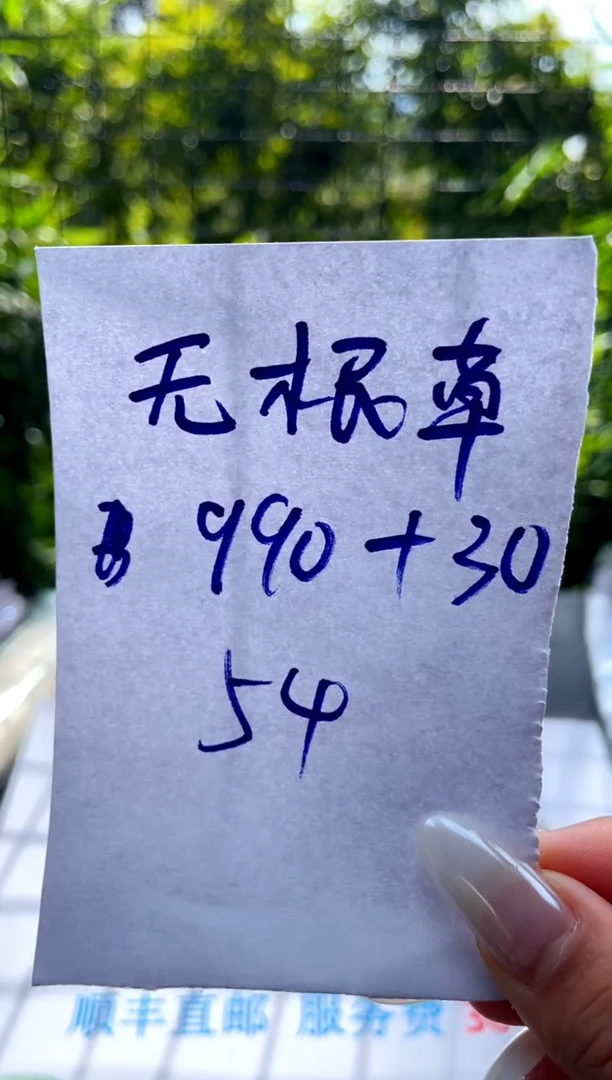 无根草
990+30
54
顺丰直邮 服务费 30